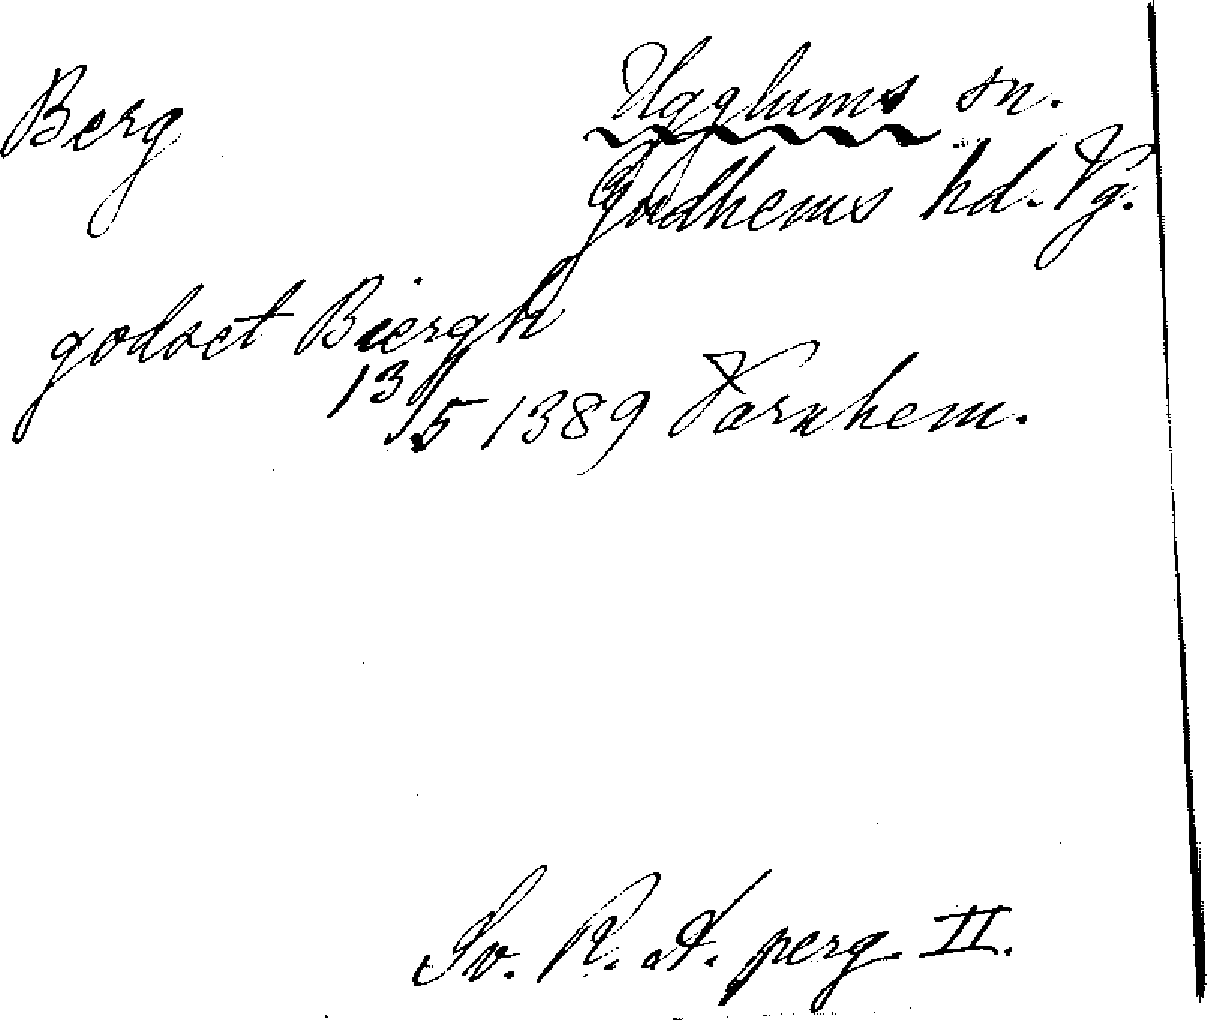 Berg Ugglums sn.
Gudhems hd. Vg.
godset Biergh
13/5 1389 Varnhem.
Sv. R. A. perg. II.